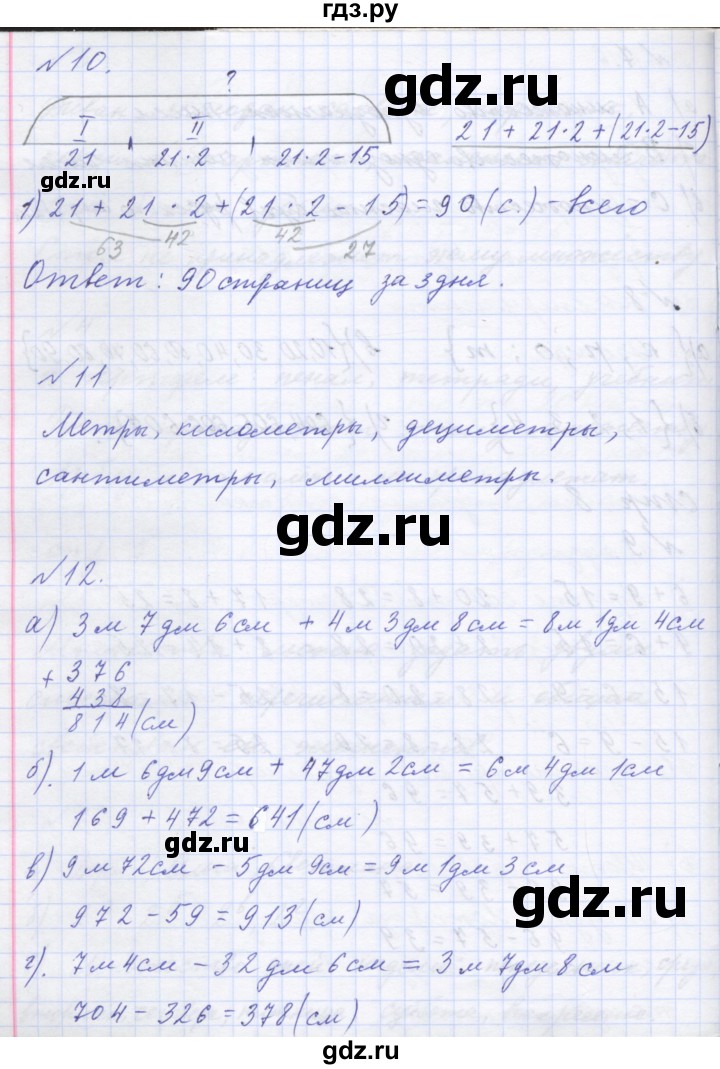 гдз.ру
№10.
?
I II
21 21·2 21·2-15
21+21·2+(21·2-15)
1) 21 + 21 · 2 + (21 · 2 - 15) = 90 (с.) - всего
63 42 42 27
Ответ: 90 страниц за 3 дня.
№11.
Метры, километры, дециметры,
сантиметры, миллиметры.
№12.
а) 3 м 7 дм 6 см + 4 м 3 дм 8 см = 8 м 1 дм 4 см
+ 376
438
814 (см)
б). 1 м 6 дм 9 см + 47 дм 2 см = 6 м 4 дм 1 см
169 + 472 = 641 (см)
в) 9 м 72 см - 5 дм 9 см = 9 м 1 дм 3 см
972 - 59 = 913 (см)
г). 7 м 4 см - 32 дм 6 см = 3 м 7 дм 8 см
704 - 326 = 378 (см)
gdz.ru
gdz.ru
gdz.ru
gdz.ru
gdz.ru
gdz.ru
gdz.ru
gdz.ru